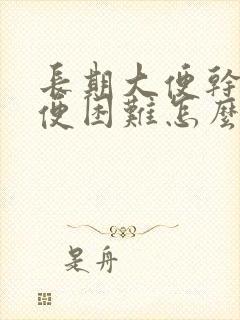 長期大便幹
便困難怎麼
是舟